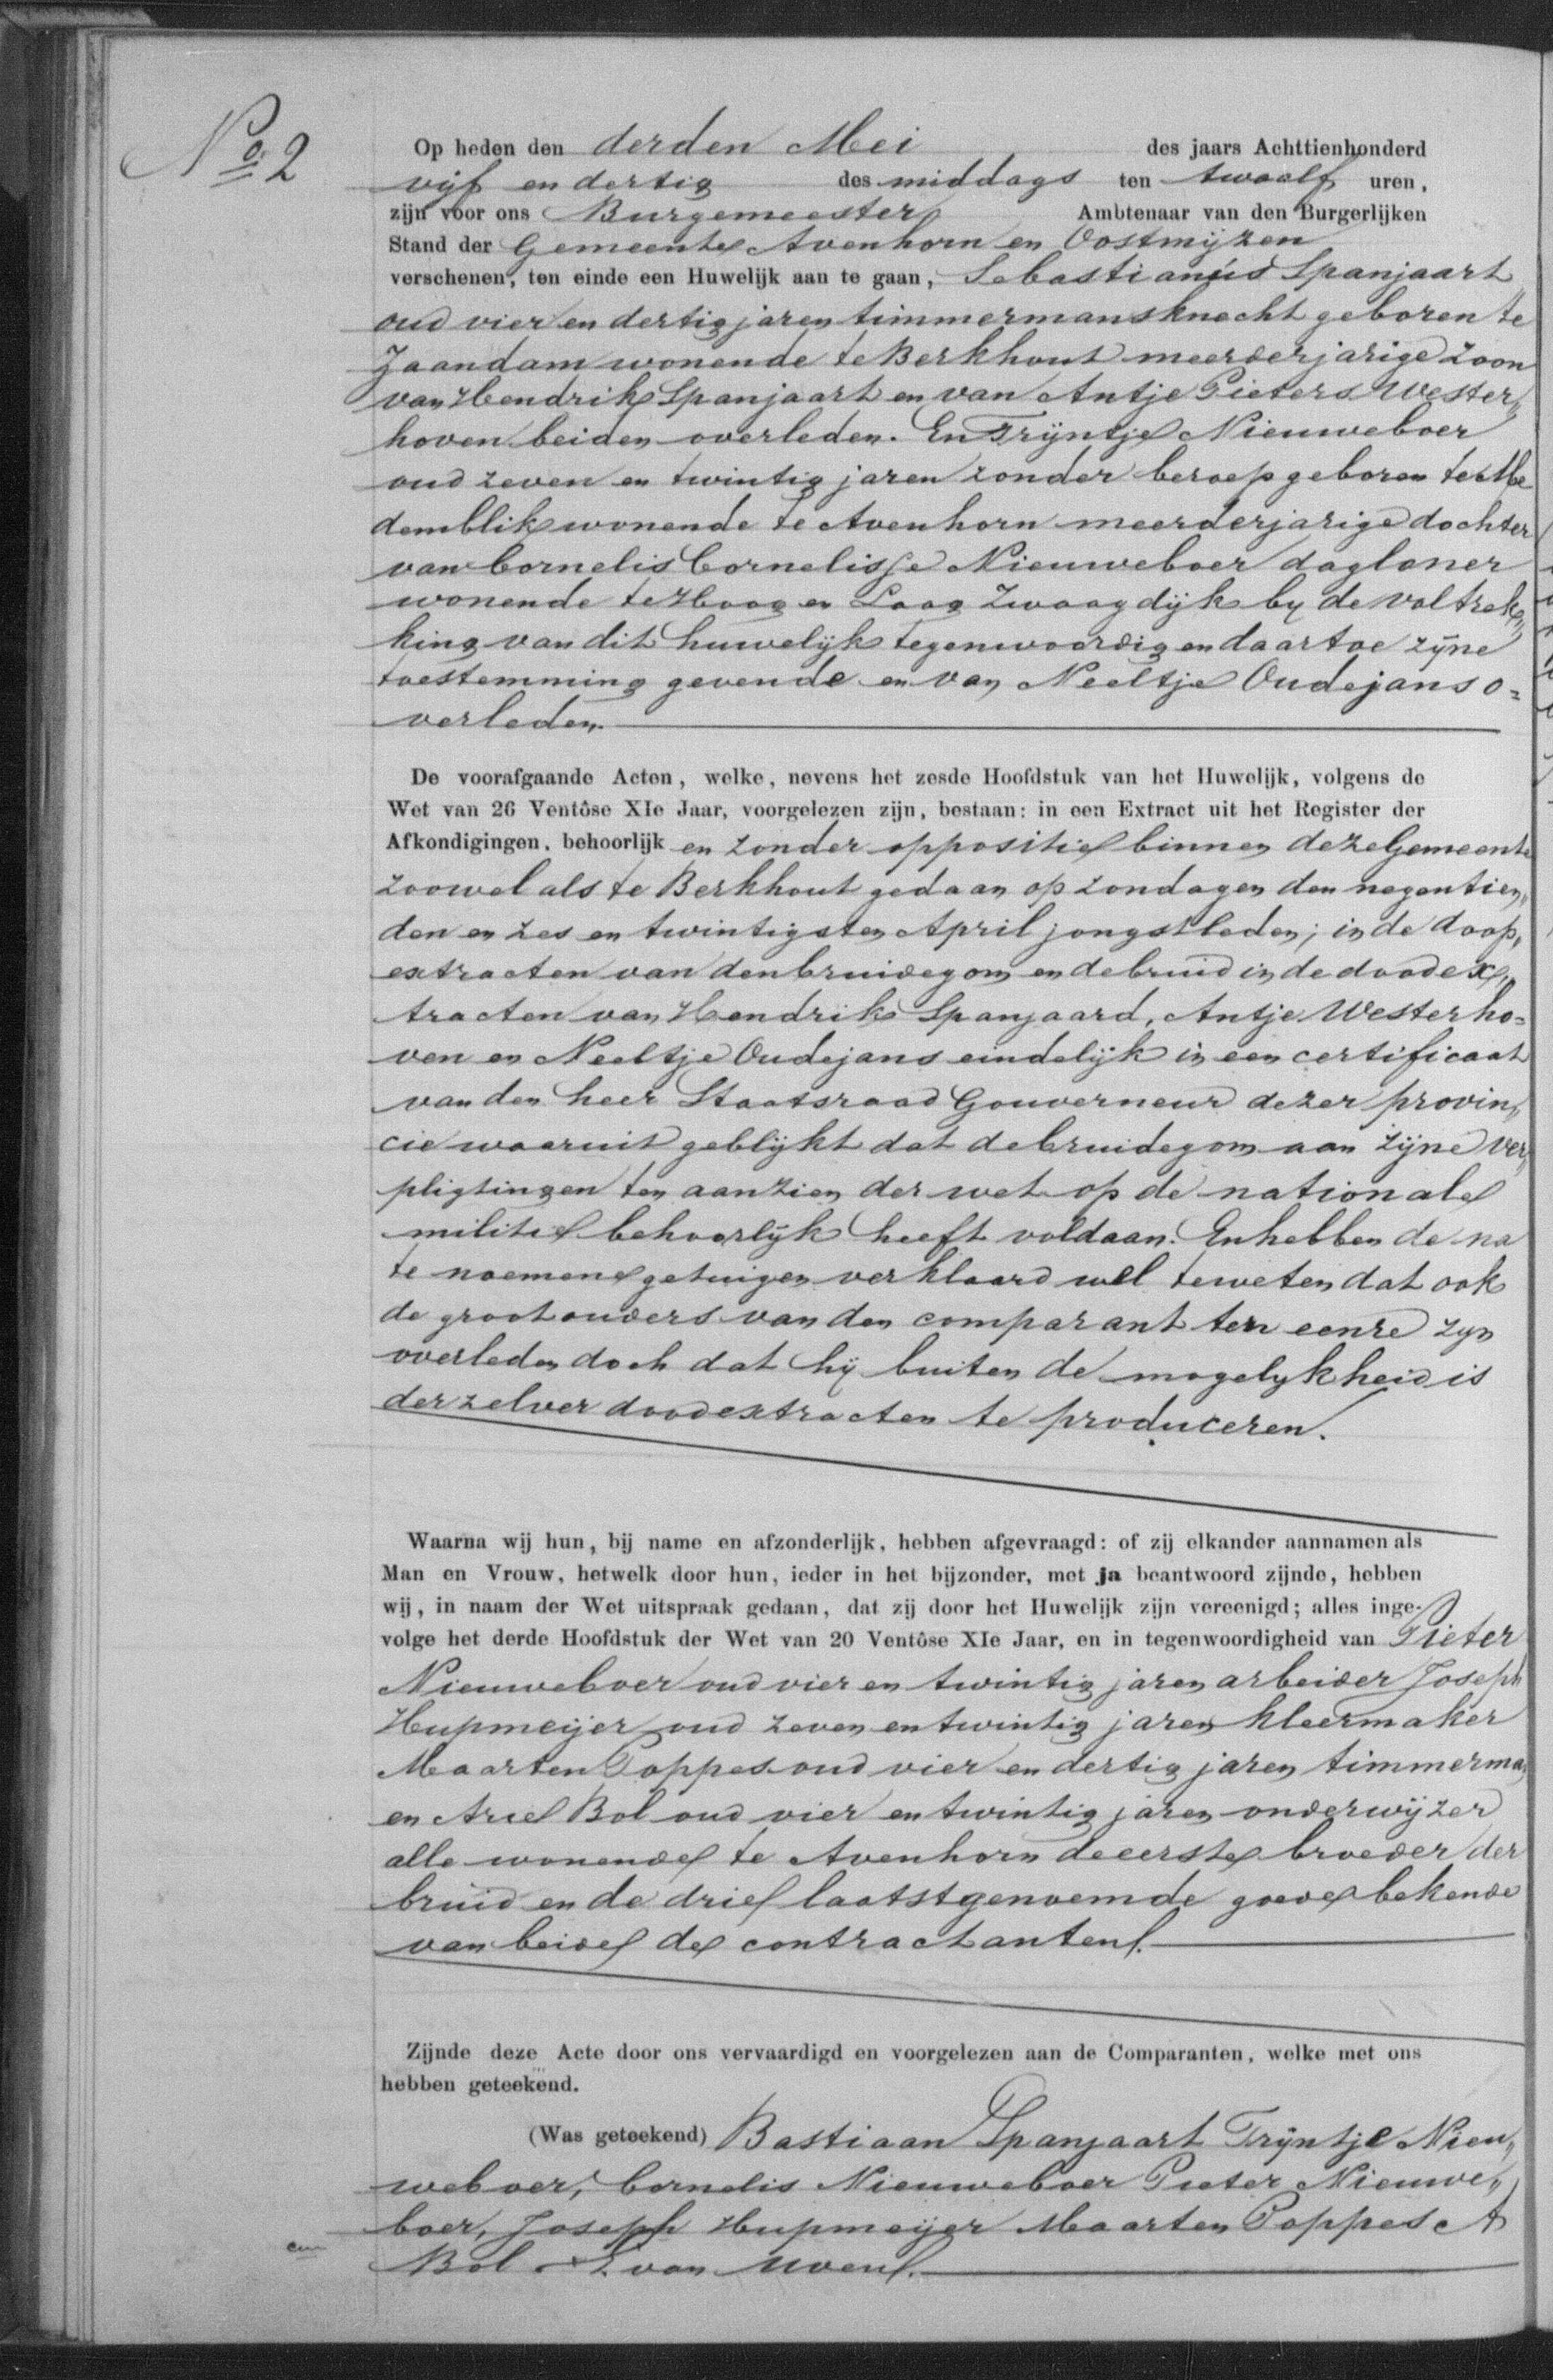 No. 2
Op heden den derden Mei des jaars Achttienhonderd
vijf en dertig des middags ten twaalf uren,
zijn voor ons Burgemeester Ambtenaar van den Burgerlijken
Stand der Gemeente Avenhorn en Oostmijzen
verschenen, ten einde een Huwelijk aan te gaan, Sebastianús Spanjaart
oud vier en dertig jaren timmermansknecht geboren te
Zaandam wonende te Berkhout meerderjarige zoon
van Hendrik Spanjaart en van Antje Pieters Wester„
hoven beiden overleden. En Trijntje Nieuweboer
oud zeven en twintig jaren zonder beroep geboren te Me
demblik wonende te Avenhorn meerderjarige dochter
van Cornelis Cornelisse Nieuweboer dagloner
wonende te Hoog en Laag Zwaagdijk by de voltrek„
king van dit huwelijk tegenwoordig en daartoe zijne
toestemming gevende en van Neeltje Oudejans o=
verleden.
De voorafgaande Acten, welke, nevens het zesde Hoofdstuk van het Huwelijk, volgens de
Wet van 26 Ventôse XIe Jaar, voorgelezen zijn, bestaan: in een Extract uit het Register der
Afkondigingen, behoorlijk en zonder oppositie binnen deze Gemeente
zoowel als te Berkhout gedaan op zondagen den negentien„
den en zes en twintigsten April jongstleden; in de doop„
extracten van den bruidegom en de bruid in de doodex„
tracten van Hendrik Spanjaard, Antje Westerho=
ven en Neeltje Oudejans eindelijk in een certificaat
van den heer Staatsraad Gouverneur dezer provin„
cie waaruit geblijkt dat de bruidegom aan zijne ver„
pligtingen ten aanzien der wet op de nationale
militie behoorlijk heeft voldaan. En hebben de na
te noemene getuigen verklaard wel te weten dat ook
de grootouders van den comparant ten eenre zyn
overleden doch dat hij buiten de mogelykheid is
derzelver doodextracten te produceren.
Waarna wij hun, bij name en afzonderlijk, hebben afgevraagd: of zij elkander aannamen als
Man en Vrouw, hetwelk door hun, ieder in het bijzonder, met ja beantwoord zijnde, hebben
wij, in naam der Wet uitspraak gedaan, dat zij door het Huwelijk zijn vereenigd; alles inge-
volge het derde Hoofdstuk der Wet van 20 Ventôse XIe Jaar, en in tegenwoordigheid van Pieter
Nieuweboer oud vier en twintig jaren arbeider Joseph
Hupmeijer oud zeven en twintig jaren kleermaker
Maarten Poppes oud vier en dertig jaren timmerma
en Arie Bol oud vier en twintig jaren onderwijzer
alle wonende te Avenhorn de eerste broeder der
bruid en de drie laatstgenoemde goede bekende
van beide de contractanten.
Zijnde deze Acte door ons vervaardigd en voorgelezen aan de Comparanten, welke met ons
hebben geteekend.
(Was geteekend) Bastiaan Spanjaart Trijntje Nieu„
weboer, Cornelis Nieuweboer Pieter Nieuwe„
boer, Joseph Hupmeijer Maarten Poppes A
Bol van